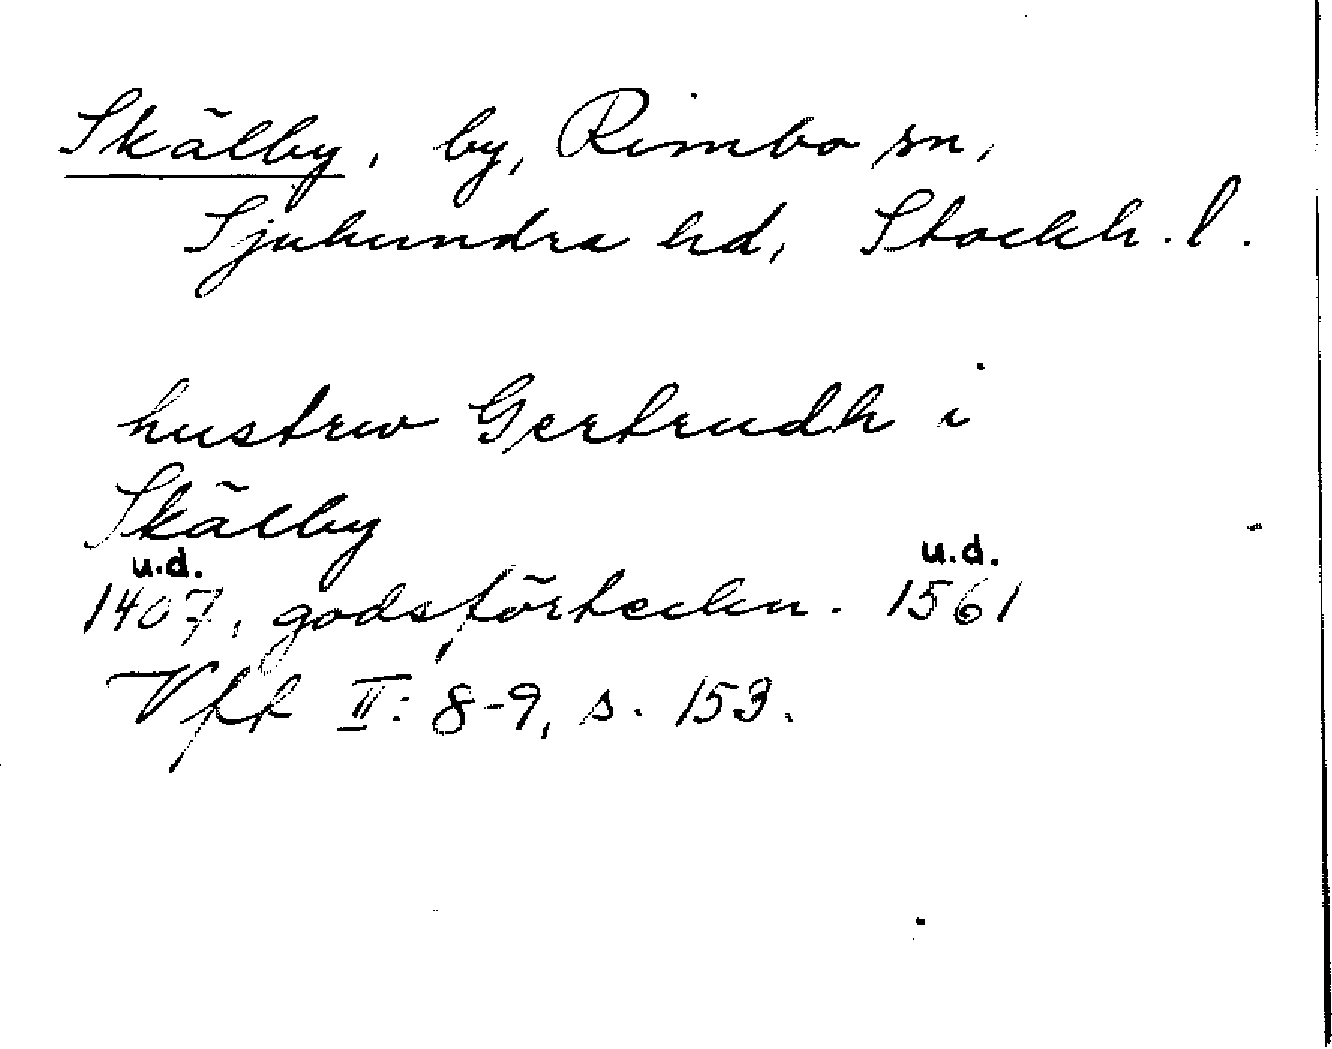 Skälby, by, Rimbo sn,
Sjuhundra hd, Stockh. l.
hustrw Gertrudh i
Skälby
u.d. u.d.
1407, godsförteckn. 1561
Vff II: 8-9, s. 153.